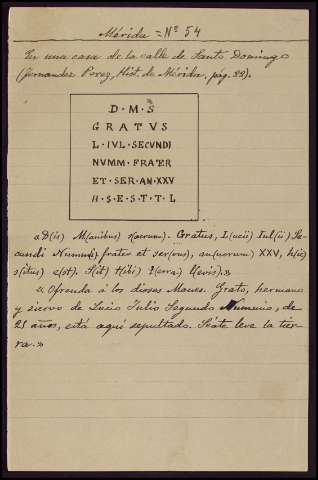 Mérida = Nº 54
En una casa de la calle de Santo Domingo
(Fernandez Perez, Hist. de Mérida, pág. 22).
D · M · S
GRATVS
L · IVL · SECVNDI
NVMM · FRATER
ET · SER · AN · XXV
H · S · E · S · T · T · L
«D(is) M(anibus) s(acrum). Gratus, L(ucii) Iul(ii) Se-
cundi Numm(i) frater et ser(vus), an(norum) XXV, h(ic)
s(itus) e(st). S(it) t(ibi) t(erra) l(evis).»
«Ofrenda á los dioses Manes. Grato, hermano
y siervo de Lucio Julio Segundo Numenio, de
25 años, está aquí sepultado. Séate leve la tier-
ra.»